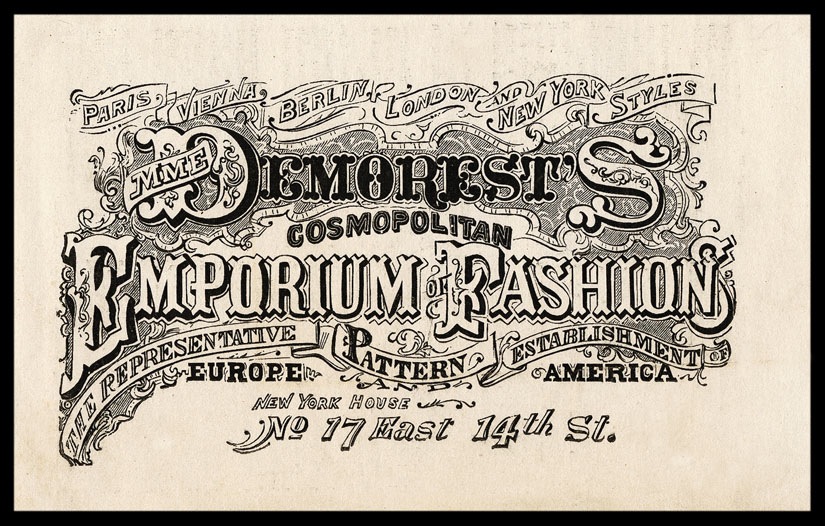 PARIS, VIENNA, BERLIN, LONDON AND NEW YORK STYLES
MME DEMOREST'S
COSMOPOLITAN
EMPORIUM OF FASHIONS
THE REPRESENTATIVE PATTERN ESTABLISHMENT OF
EUROPE AND AMERICA
NEW YORK HOUSE
No 17 East 14th St.